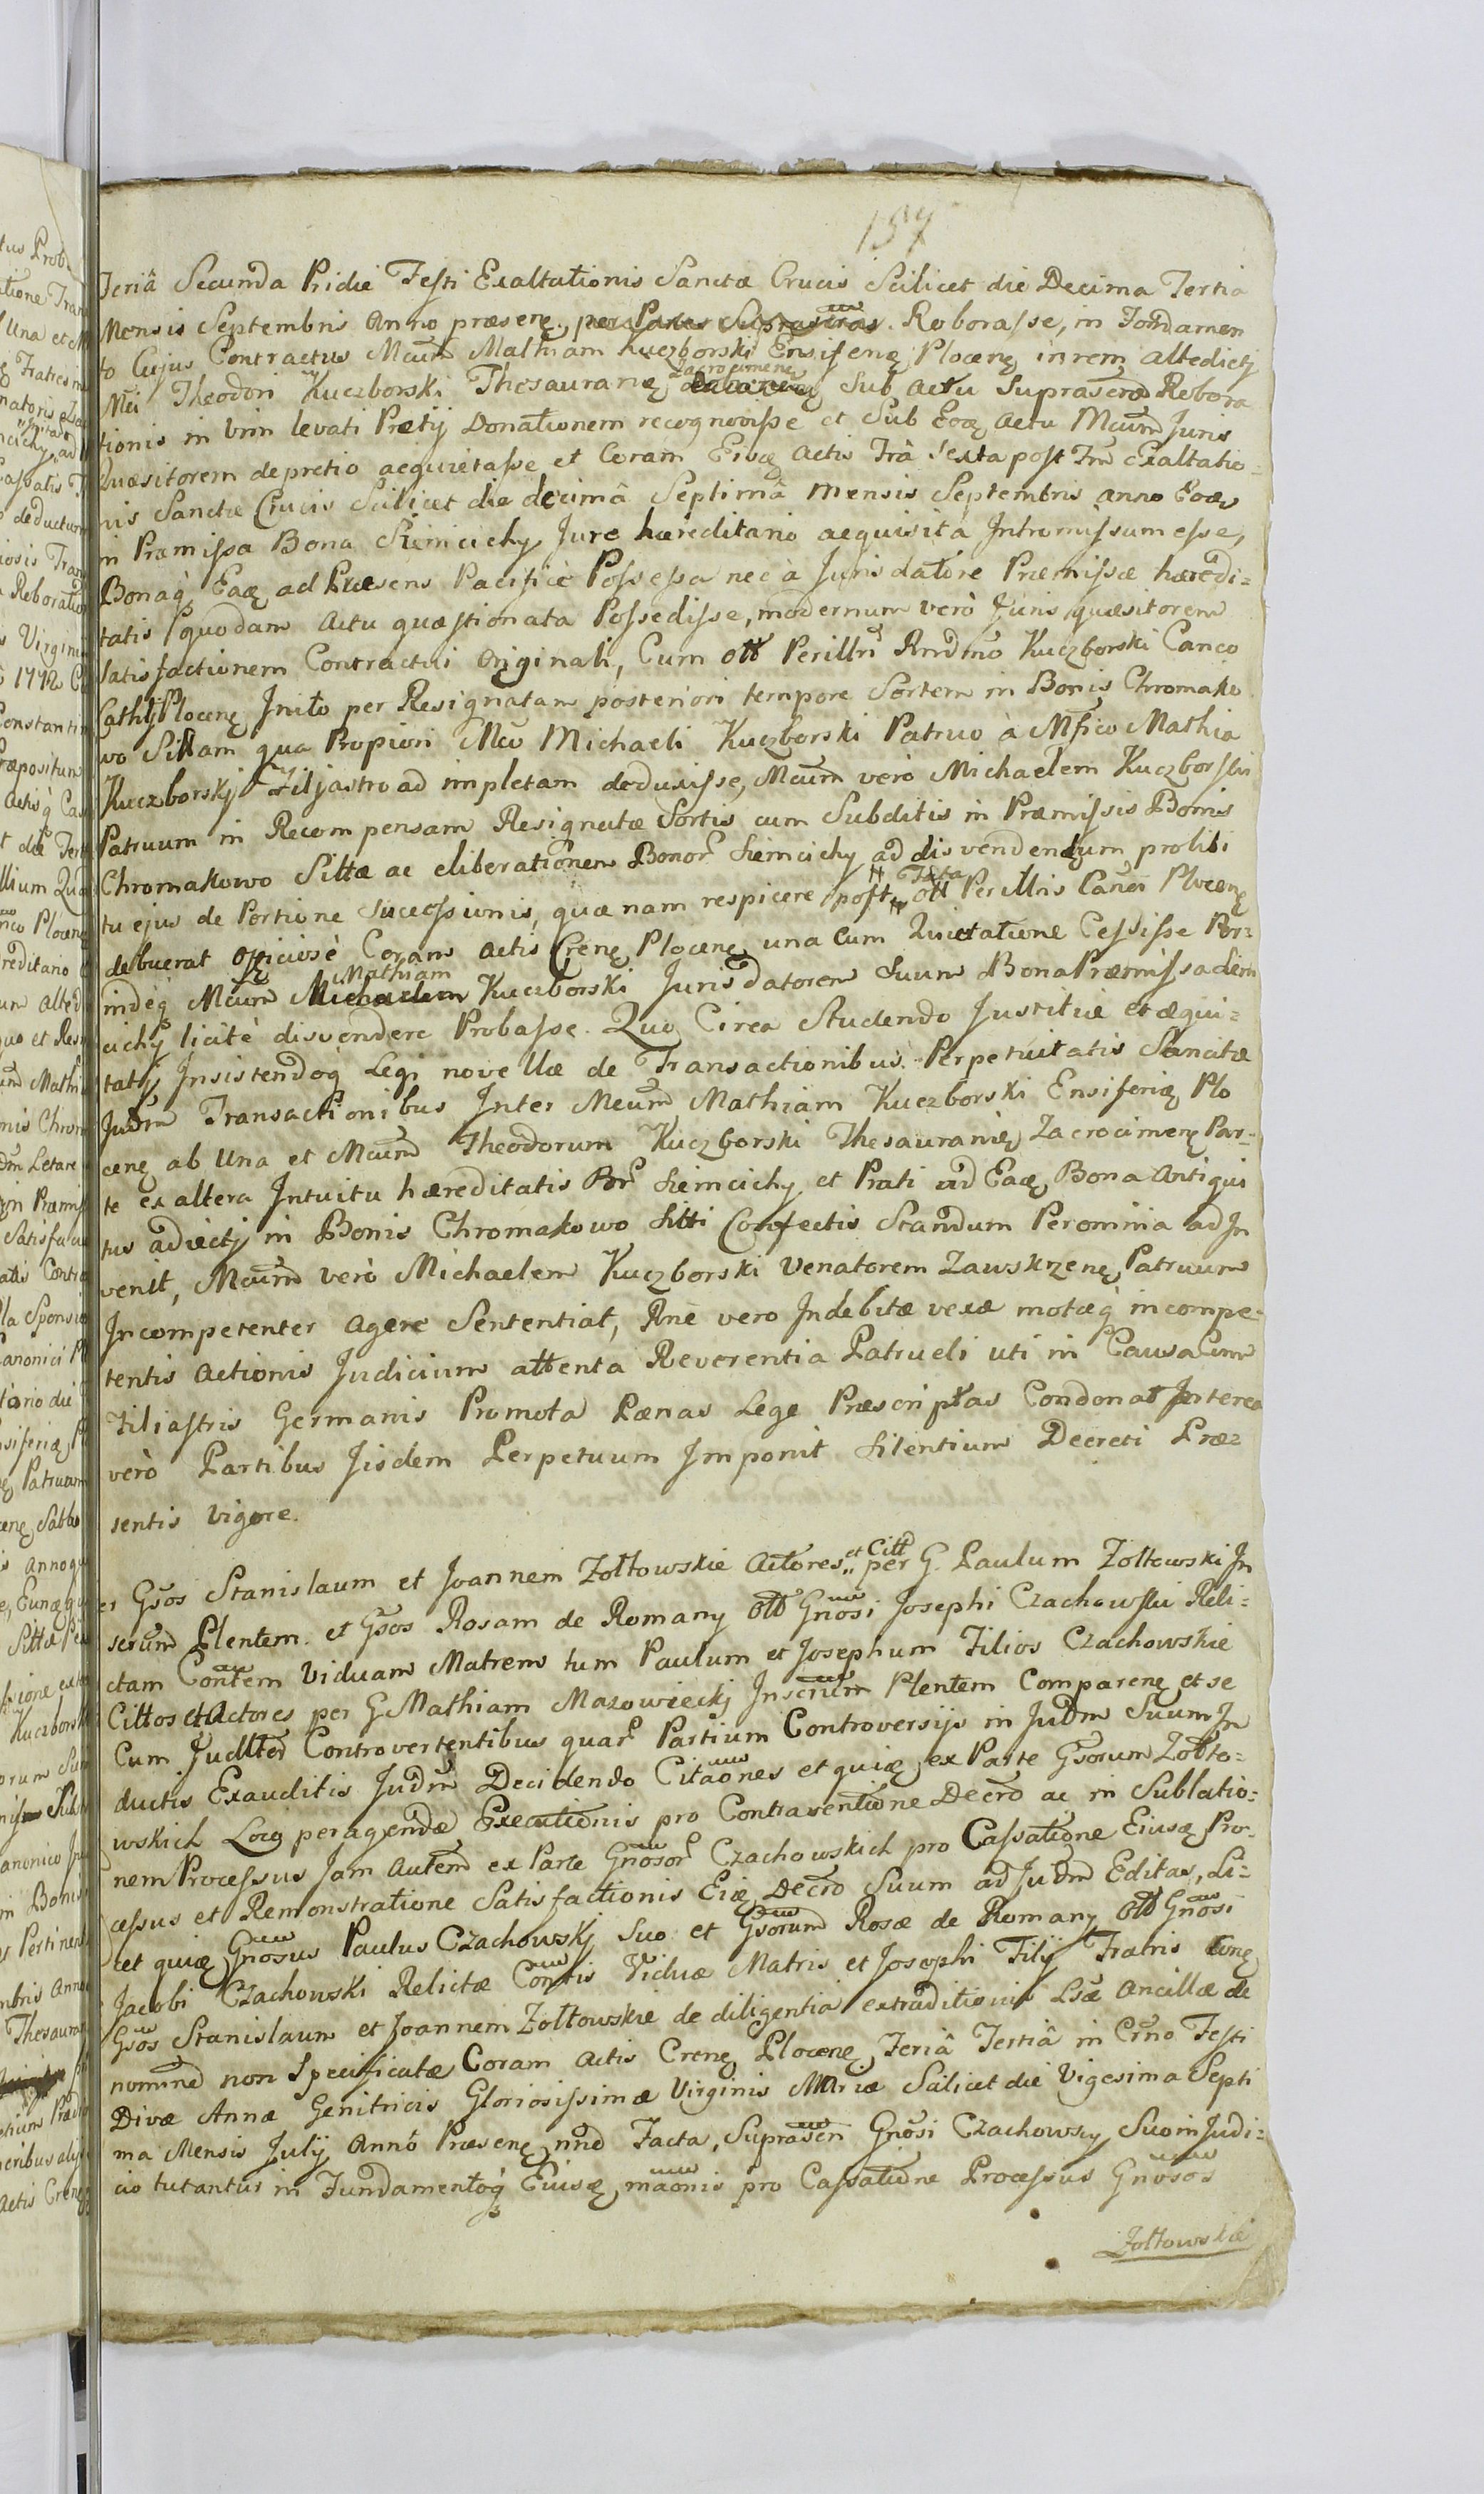 157
Feriâ Secunda Pridie Festi Exaltationis Sanctæ Crucis Scilicet die Decima Tertia
Mensis Septembris Anno præsenę, per Partes Suprascras. Roborasse, in Fondamen
to Cujus Contractus Mcum Mathiam Kuczborski Ensiferię Plocenę in rem altedictj
Mci Theodori Kuczborski Thesaurarię Zacrocimenę Sub actu Suprascro Robora
tionis in vim levati Prætij Donationem recognovisse et Sub Eoę Actu Mcum Juris
Quæsitorem de pretio acquietasse et Coram Eisę Actis Frâ Sexta post Fm Exaltatio-
nis Sanctæ Crucis Scilicet die decimâ Septimâ Mensis Septembris Anno Eoę
in Præmissa Bona Siemcichy Jure hæreditario acquisita Intromissum esse,
Bonaq́ Eaę ad Præsens Pacificè Possessa nec à Juris datore Præmissæ hæredi=
tatis quodam Actu quæstionata Possedisse, modernum verò Juris quæsitorem
Satisfactionem Contractui Originali, Cum ott Perillri Rndmo Kuczborski Canco
Cathlj Plocenę Inito per Resignatam posteriori tempore Sortem in Bonis Chromako
wo Sittam qua Propiori Mco Michaeli Kuczborski Patruo à Mfico Mathia
Kuczborskj Filjastro ad impletam deduxisse, Mcum verò Michaelem Kuczborski
Patruum in Recompensam Resignatæ Sortis cum Subditis in Præmissis Bonis
Chromakowo Sittæ ac eliberationem Bonor Siemcichy ad disvendendum prolibi
tu ejus de Portione Successionis, quæ nam respicere post # # Fata ott Perillris Canci Plocenę
debuerat officiosè Coram Actis Crenę Plocenę una cum Quietatione Cessisse Per-
indeę Mcum Michaelem Mathiam Kuczborski Juris datorem Suum Bona Præmissa Siem
cichy licitè disvendere Probasse. Quo Circa Studendo Justitiæ et æqui=
tatj Insistendoq́ Legi novellæ de Transactionibus Perpetuitatis Sancitæ
Judm Transactionibus Inter Mcum Mathiam Kuczborski Ensiferię Plo
cenę ab Una et Mcum Theodorum Kuczborski Thesaurarię Zacrocimenę Par-
te ex altera Intuitu hæreditatis Bor Siemcichy et Prati ad Eaę Bona Antiqui
tus adiectj in Bonis Chromakowo Sitti Confectis Standum Peromnia adIn
venit, Mcum verò Michaelem Kuczborski Venatorem Zawskrzenę Patruum
Incompetenter Agere Sententiat, Rne vero Indebitæ vexæ motæq́ incompe=
tentis Actionis Judicium attenta Reverentia Patrueli uti in Causa Cum
Filiastris Germanis Promota Pænas Lege Præscriptas Condonat Interea
verò Partibus Iisdem Perpetuum Imponit Silentium Decreti Præ=
sentis Vigore.
er Gsos Stanislaum et Joannem Zołtowskie Actores et Citt per G. Paulum Zołtowski In
scrum Plentem. et Gsos Rosam de Romany ott Gnosi Josephi Czachowski Reli=
ctam Contem Viduam Matrem tum Paulum et Josephum Filios Czachowskie
Cittos et Actores per G Mathiam Mazowieckj Inscrum Plentem Comparenę et se
Cum Judlter Controvertentibus quar Partium Controversijs in Judm Suum In
ductis Exauditis Judm Decidendo Citaones et quię ex Parte Gsorum Zołto=
wskich Loco peragendæ Executionis pro Contraventione Decro ac in Sublatio=
nem Processus Jam Autem ex Parte Gnosor Czachowskich pro Cassatione Eiusę Pro-
cessus et Remonstratione Satisfactionis Eię Decro Suum ad Judm Editas, Li=
cet quię Gnosus Paulus Czachowskj Suo et Gsorum Rosæ de Romany ott Gnosi
Jacobi Czachowski Relictæ Contis Viduæ Matris et Josephi Filij Fratris
Gsos Stanislaum et Joannem Zołtowskie de diligentia extraditionis Lsæ Ancillæ de
nomine non Specificatæ Coram Actis Crenę Plocenę Feriâ Tertiâ in Crno Festi
Divæ Annæ Genitricis Gloriosissimæ Virginis Mariæ Scilicet die Vigesima Septi
ma Mensis Julij Annô Præsenę nne Facta, Suprascri Gnosi Czachowscy Suo in Judi=
cio tutantur in Fundamentoq́ Eiusę maonis pro Cassatione Processus Gnosos
Zołtowskie